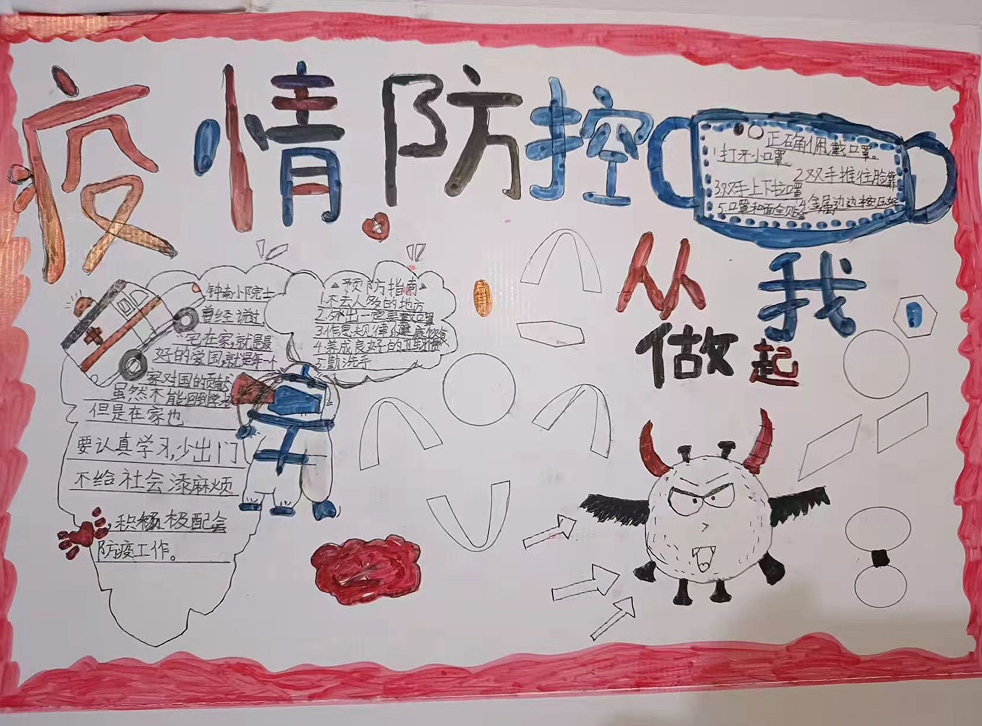 疫情防控
正确佩戴口罩。
1打开小口罩
2双手推住脸靠
3双手上下拉口罩
4金属边边按压
5口罩和面全贴
从我
做起
钟南山院士
曾经说过
宅在家就是最
好的爱国,就是每一个
家对国的贡献
虽然不能回到学校
但是在家也
要认真学习,少出门
不给社会添麻烦
积极极配合
防疫工作。
预防指南
1.不去人多的地方
2.外出一定要戴口罩
3.作息规律
4.养成良好的卫生
5.勤洗手